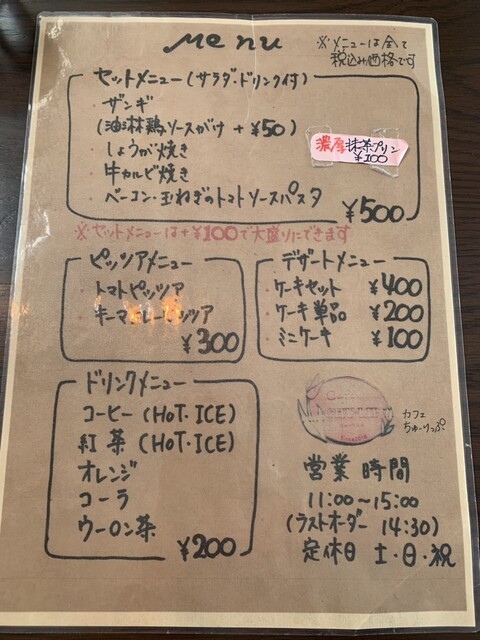 Menu
※メニューは全て
税込み価格です
セットメニュー(サラダ・ドリンク付)
・ザンギ
(油淋鶏ソースがけ +¥50)
・しょうが焼き
・牛カルビ焼き
・ベーコン・玉ねぎのトマトソースパスタ
¥500
濃厚抹茶プリン
¥100
※セットメニューは+¥100で大盛りにできます
ピッツアメニュー
・トマトピッツア
・キーマカレーピッツア
¥300
デザートメニュー
・ケーキセット ¥400
・ケーキ単品 ¥200
・ミニケーキ ¥100
ドリンクメニュー
コーヒー(HOT・ICE)
紅茶(HOT・ICE)
オレンジ
コーラ
ウーロン茶
¥200
カフェ
ちゅーりっぷ
営業時間
11:00～15:00
(ラストオーダー 14:30)
定休日 土・日・祝